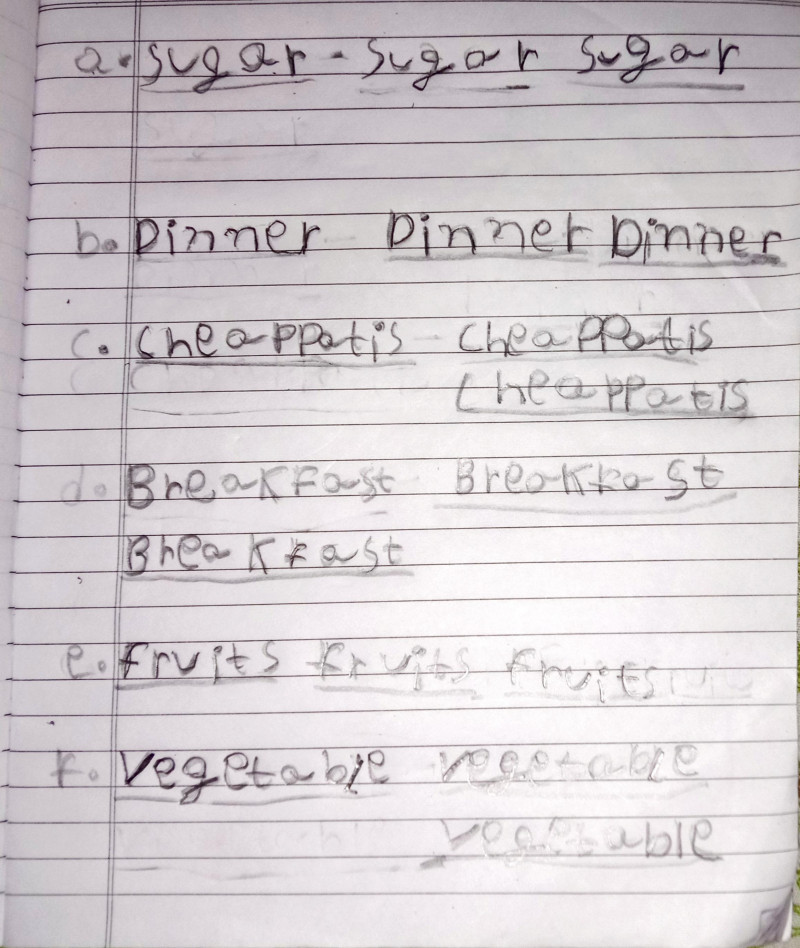 a. Sugar - Sugar Sugar
b. Dinner Dinner Dinner
c. Cheappatis Cheappatis
Cheappatis
d. Breakfast Breakfast
Breakfast
e. fruits fruits fruits
f. Vegetable vegetable
vegetable